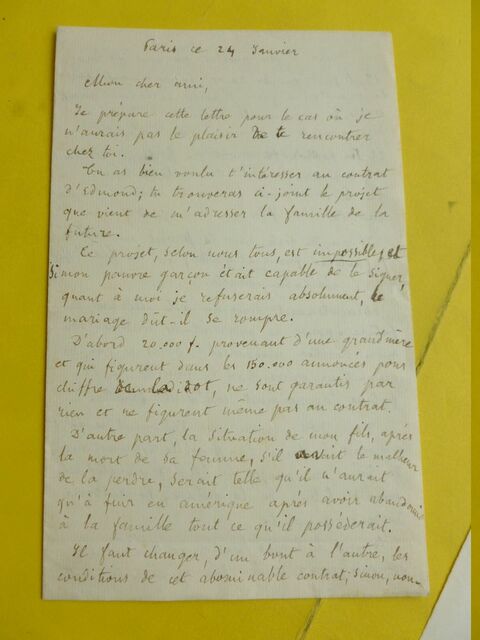 Paris ce 24 Janvier
Mon cher ami,
Je prépare cette lettre pour le cas où je
n'aurais pas le plaisir de te rencontrer
chez toi.
Tu as bien voulu t'intéresser au contrat
d'Edmond; tu trouveras ci-joint le projet
que vient de m'adresser la famille de la
future.
Ce projet, selon nous tous, est impossible, et
Simon pauvre garçon était capable de le signer,
quant à moi je refuserais absolument, le
mariage dût-il se rompre.
D'abord 20.000 f. provenant d'une grand'mère
et qui figurent dans les 150.000 annoncés pour
chiffre de la dot, ne sont garantis par
rien et ne figurent même pas au contrat.
D'autre part, la situation de mon fils, après
la mort de sa femme, s'il avait le malheur
de la perdre, serait telle qu'il n'aurait
qu'à fuir en amérique après avoir abandonné
à la famille tout ce qu'il posséderait.
Il faut changer, d'un bout à l'autre, les
conditions de cet abominable contrat; Simon, nou-